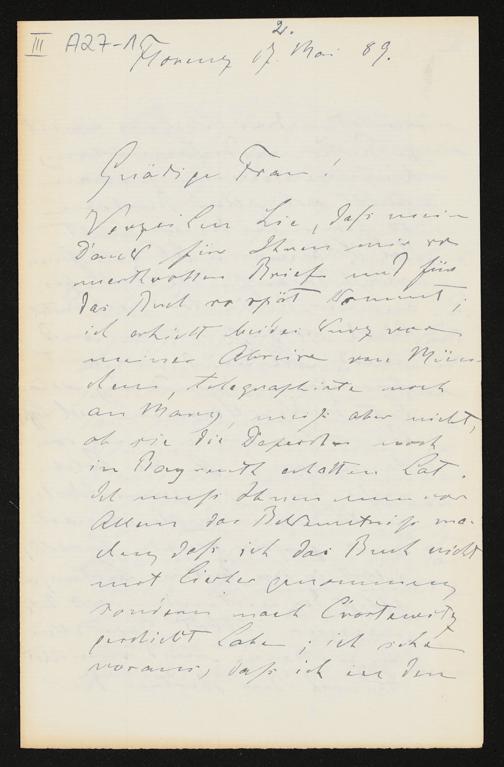 2.
III A27-1
Florenz 17. Mai 89.
Gnädige Frau!
Verzeihen Sie, daß mein
Dank für Ihren mir so
werthvollen Brief und für
das Buch so spät kommt;
ich erhielt beides kurz vor
meiner Abreise von Mün-
chen, telegraphirte noch
an Mary, weiß aber nicht,
ob sie die Depesche noch
in Bayreuth erhalten hat.
Ich muß Ihnen nun vor
Allem das Bekenntniß ma-
chen, daß ich das Buch nicht
mit hierher genommen,
sondern nach
geschickt habe; ich sehe
voraus, daß ich in den